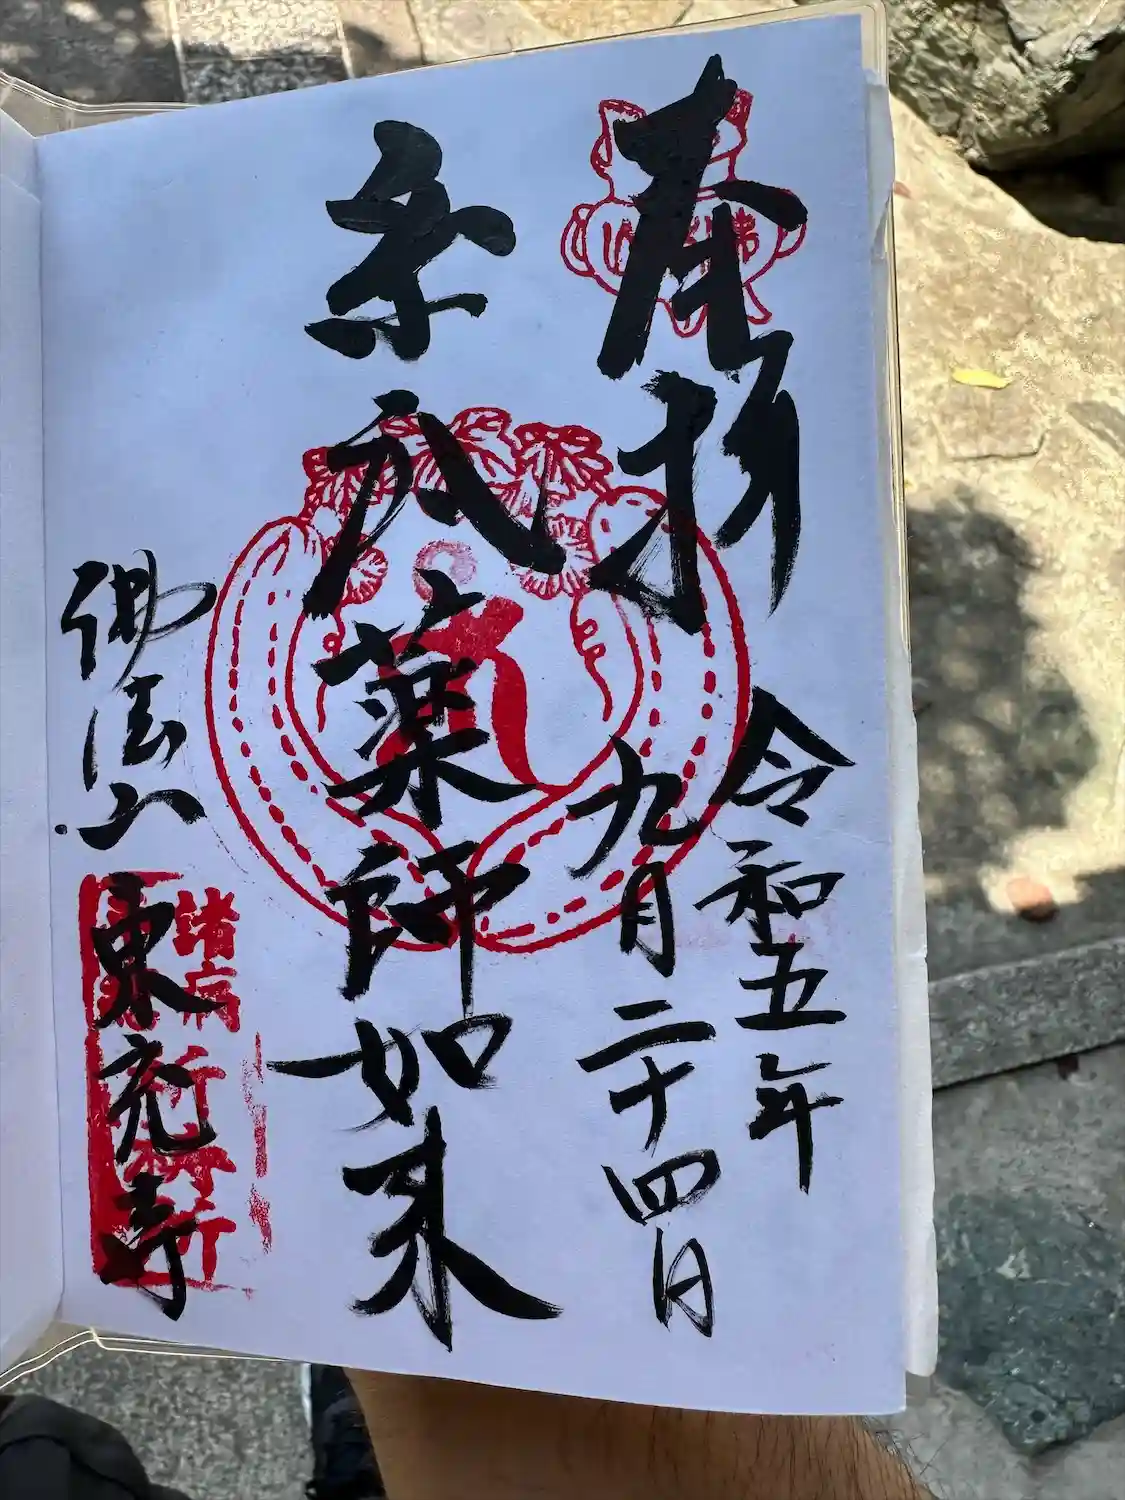 奉拝
令和五年
九月二十四日
糸瓜薬師如来
佛法山
東充寺